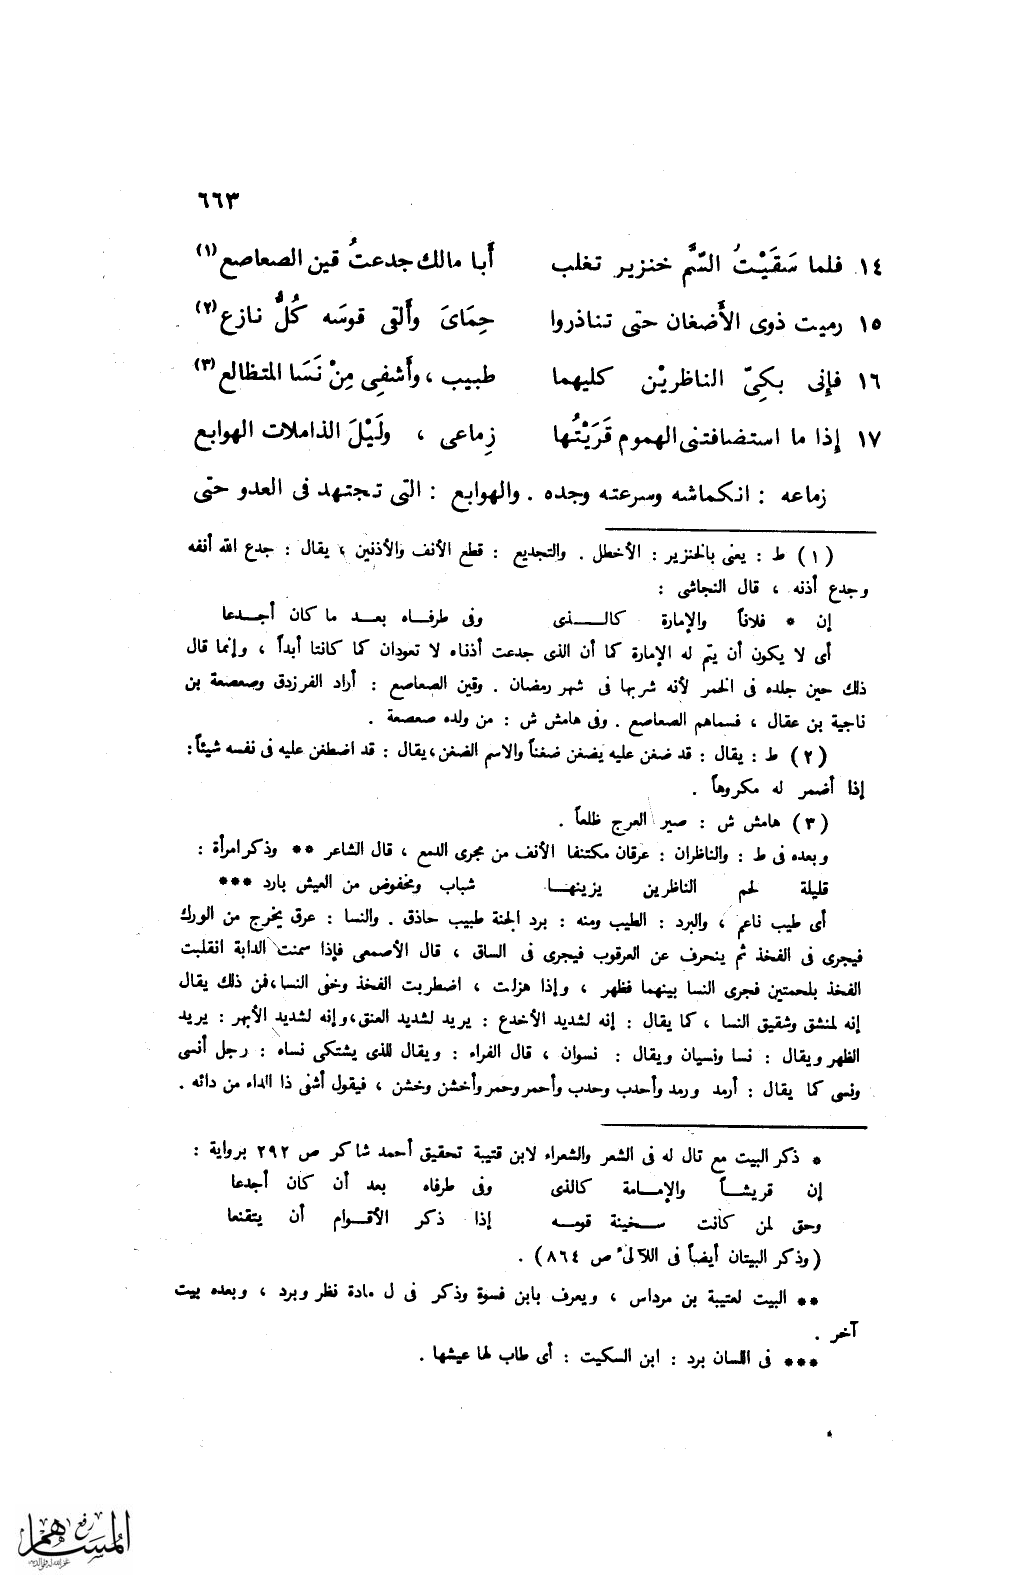 ٦٦٣
١٤ فلما سَقَيْتُ السَّمَّ خنزير تغلب أَبا مالك جدعتُ قين الصعاصع (١)
١٥ رميت ذوى الأَضغان حتى تناذروا حِمَاىَ وأَلقى قوسَه كُلُّ نازع (٢)
١٦ فإنى بكِىّ الناظريْن كليهما طبيب ، وأَشفِى مِنْ نَسَا المتظالع (٣)
١٧ إذا ما استضافتنى الهموم قَرَيْتُها زِماعى ، ولَيْلَ الذاملات الهوابع
زماعه : انكماشه وسرعته وجده . والهوابع : التى تجتهد فى العدو حتى
(١) ط : يعنى بالخنزير : الأخطل . والتجديع : قطع الأنف والأذنين ، يقال : جدع الله أنفه
وجدع أذنه ، قال النجاشى :
إن * فلاناً والإمارة كالــذى وفى طرفــاه بعــد ما كان أجــدعا
أى لا يكون أن يتم له الإمارة كما أن الذى جدعت أذناه لا تعودان كما كانتا أبداً ، وإنما قال
ذلك حين جلده فى الخمر لأنه شربها فى شهر رمضان . وقين الصعاصع : أراد الفرزدق وصعصعة بن
ناجية بن عقال ، فسماهم الصعاصع . وفى هامش ش : من ولده صعصعة .
(٢) ط : يقال : قد ضغن عليه يضغن ضغناً والاسم الضغن ، يقال : قد اضطغن عليه فى نفسه شيئاً :
إذا أضمر له مكروهاً .
(٣) هامش ش : صير العرج ظلعاً .
وبعده فى ط : والناظران : عرقان مكتنفا الأنف من مجرى الدمع ، قال الشاعر ** وذكر امرأة :
قليلة لحم الناظرين يزينهــا شباب ومخفوض من العيش بارد ***
أى طيب ناعم ، والبرد : الطيب ومنه : برد الجنة طبيب حاذق . والنسا : عرق يخرج من الورك
فيجرى فى الفخذ ثم ينحرف عن العرقوب فيجرى فى الساق ، قال الأصمعى فإذا سمنت الدابة انفلقت
الفخذ بلحمتين فجرى النسا بينهما فظهر ، وإذا هزلت ، اضطربت الفخذ وخفى النسا ، فن ذلك يقال
إنه لمنشق وشقيق النسا ، كما يقال : إنه لشديد الأخدع : يريد لشديد العنق ، وإنه لشديد الأبهر : يريد
الظهر ويقال : نسا ونسيان ويقال : نسوان ، قال الفراء : ويقال للذى يشتكى نساه : رجل أنسى
ونسى كما يقال : أرمد ورمد وأحدب وحدب وأحمر وحمر وأخشن وخشن ، فيقول أشفى ذا الداء من دائه .
* ذكر البيت مع تال له فى الشعر والشعراء لابن قتيبة تحقيق أحمد شاكر ص ٢٩٢ برواية :
إن قريشــاً والإمــامة كالذى وفى طرفاه بعد أن كان أجدعا
وحق لمن كانت سـخينة قومــه إذا ذكر الأقــوام أن يتقنعا
(وذكر البيتان أيضاً فى اللآلىء ص ٨٦٤) .
** البيت لعتيبة بن مرداس ، ويعرف بابن فسوة وذكر فى ل مادة نظر وبرد ، وبعده بيت
آخر .
*** فى اللسان برد : ابن السكيت : أى طاب لها عيشها .
رفع
المساهم